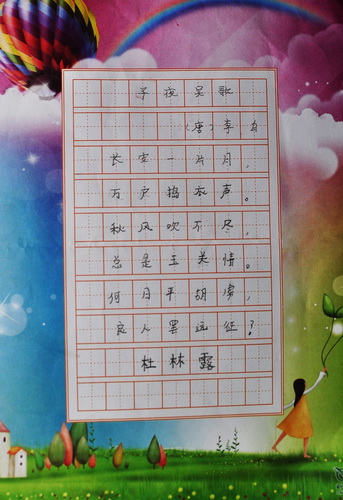 子夜吴歌
（唐）李白
长安一片月，
万户捣衣声。
秋风吹不尽，
总是玉关情。
何日平胡虏，
良人罢远征？
杜林露